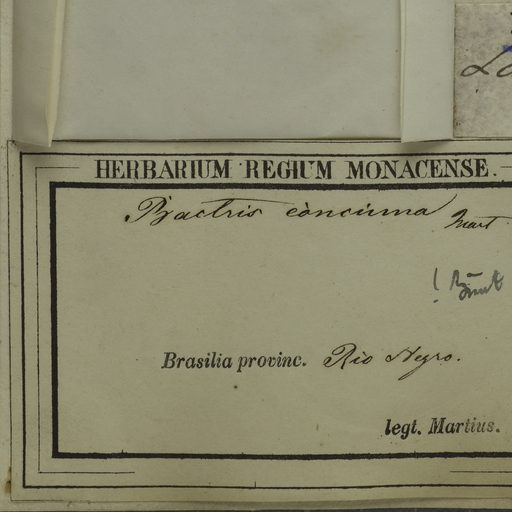 HERBARIUM REGIUM MONACENSE.
Bactris concinna Mart
!
Brasilia provinc. Rio Negro.
legt. Martius.